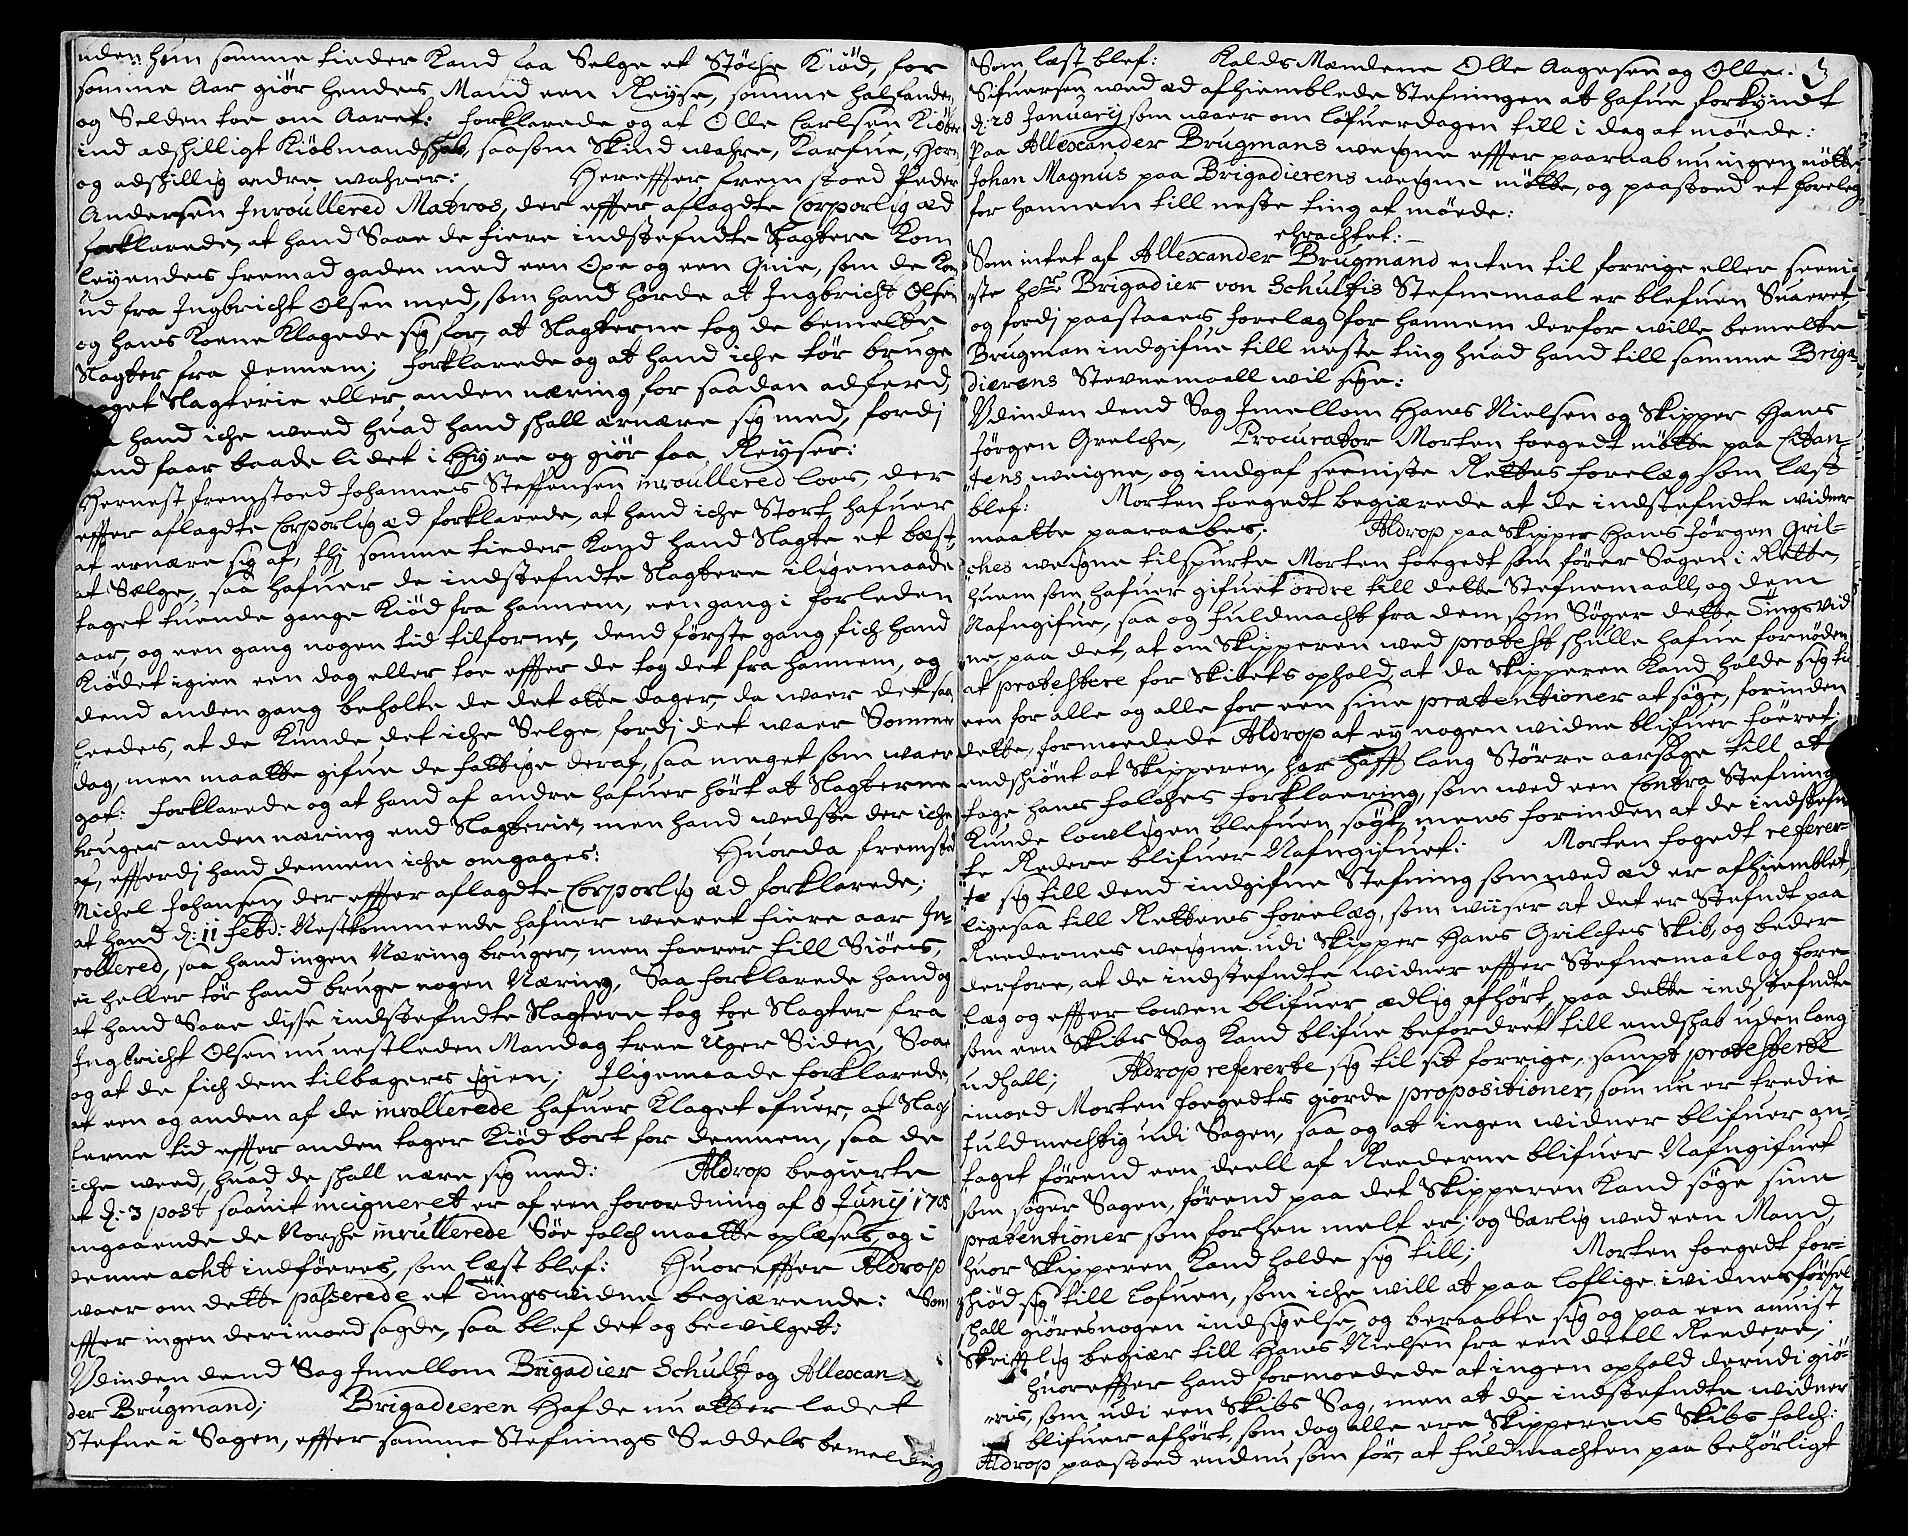 uden hun somme tieder Kand faa Selge et Støche Kiød, for
somme Aar giør hendes Mand een Reyse, somme halfanden
og Selden toe om Aaret: forklarede og at Olle Carlsen Kiøber
ind adshilligt Kiøbmandshab, saasom Skind wahre, Karfue, Horn
og adshillig andre wahrer: Hereffter fremstoed Peder
Andersen Inroullered Matros, der effter aflagdte Corporlig æd
forklarede, at hand Saae de fiere indstefndte Slagtere Kom
leyendes fremad gaden med een Oxe og een Quie, som de Kom
ud fra Ingbricht Olsen med, som hand hørde at Ingbricht Olsen
og hans Koene Klagede sig for, at Slagterne tog de bemeldte
Slagter fra dennem; forklarede og at hand iche tør bruge
noget Slagterie eller anden næring for saadan adferd,
hand iche weed huad hand shall ernære sig med, fordj
hand faar baade lidet i Hyre og giør faa Reyser:
Hernest fremstoed Johannes Steffensen inroullered loos, der
effter aflagdte Corporlig æd forklarede, at hand iche Stort hafuer
at ernære sig af, thj somme tieder Kand hand Slagte et bæst,
at Selge, saa hafuer de indstefndte Slagtere iligemaade
taget tuende gange Kiød fra hannem, een gang i forleden
aar, og een gang nogen tid tilforne, dend første gang fich hand
Kiødet igien een dag eller toe effter de tog det fra hannem, og
dend anden gang beholte de det otte dager, da waer det saa
leedes, at de Kunde det iche Selge, fordj det waer Sommer
dag, men maatte gifue de fattige deraf, saa meget som waer
got: forklarede og at hand af andre hafuer hørt at Slagterne
bruger anden næring end Slagterie, men hand wedste der iche
af, efferdj hand dennem iche omgages: Huorda fremstoed
Michel Johansen, der effter aflagdte Corporlig æd forklarede;
at hand d: 11 Febr: Nestkommende hafuer weeret fiere aar In-
rollered, saa hand ingen Næring bruger, men faerer till Siøes,
ei heller tør hand bruge nogen Næring, Saa forklarede hand og
at hand Saae disse indstefndte Slagtere tog toe Slagter fra
Ingbricht Olsen nu nestleden Mandag tree Uger Siden, Saa
og at de fich dem tilbagers igien; Iligemaade forklarede,
at een og anden af de inrollerede hafuer Klaget ofuer, at Slag-
terne tid effter anden tager Kiød bort for dennem, saa de
iche weed, huad de shall nære sig med: Aldrop begierte
at d: 3 post saauit meigneret er af een forordning af 8 Junij 1705
angaaende de Norshe inrullerede Søe folch maatte oplæses, og i
denne acht indføeres, som læst blef: Huoreffter Aldrop
waer om dette passerede et Tingswidne begiærende: Som
effter ingen derimoed sagde, saa blef det og bewilget:
Udinden dend Sag Imellom Brigadier Schultz og Allexan-
der Brugmand; Brigadieren Hafde nu atter ladet
Stefne i Sagen, effter samme Stefnings Seddels bemelding
Som læst blef: Kalds Mændene Olle Aagesen og Olle 3
Sifuersen wed æd afhiemblede Stefningen at hafue forkyndt
d: 28 Januarij som waer om løfuerdagen till i dag at møede:
paa Allexander Brugmans weigne effter paaraab nu ingen møtte
Johan Magnus paa Brigadierens weigne møtte, og paastoed et forelæg
for hannem till neste ting at møede:
ehrachtet:
Som intet af Allexander Brugmand enten til forrige eller seeni-
ste hr Brigadier von Schultzis Stefnemaal er blefuen Suaeret,
og fordj paastaaes forelæg for hannem derfor wille bemelte
Brugman indgifue till neste ting huad hand till samme Briga-
dierens Stevnemaall wil sige:
Udinden dend Sag Imellom Hans Nielsen og Skipper Hans
Jørgen Grelche, Procurator Morten foegedt møtte paa Citan-
tens weigne, og indgaf seeniste Rettes forelæg som læst
blef: Morten foegedt begiærede at de indstefndte widner
maatte paaraabes; Aldrop paa Skipper Hans Jørgen Gril-
ches weigne tilspurte Morten foegedt som fører Sagen i Rette,
huem som hafuer gifuet ordre till dette Stefnemaall, og dem
Nafngifue, saa og fuldmacht fra dem som Søger dette Tingsvid-
ne, paa det, at om Skipperen wed protest shulle hafue fornøden
at protestere for Skibets ophold, at da Skipperen Kand holde sig til
een for alle og alle for een sine prætentioner at søge, forinden
dette, formoedede Aldrop at ey nogen widne blifuer føeret,
endshiønt at Skipperen har hafft lang Større aarsage till at
tage hans folches forklaering, som wed een Contra Stefning
Kunde lowligen blefuen søgt, mens forinden at de indstefn-
te Redere blifuer Nafngifuet: Morten fogedt referer-
te sig till dend indgifne Stefning som wed æd er afhiemblet,
ligesaa till Rettens forelæg, som wiiser at det er Stefndt paa
Reedernes weigne udi Skipper Hans Grilches Skib, og beder
derfore, at de indstefndte widner effter Stefnemaal og fore-
læg og effter lowen blifuer ædlig afhørt, paa dette indstefndte
som een Skibs Sag Kand blifue befordret till endshab uden lang
udhall; Aldrop refererte sig til sit forrige, sampt protesterte
imoed Morten foegedts giorde propositioner, som nu er tredie
fuldmechtig udi Sagen, saa og at ingen widner blifuer an-
taget førend een deell af Reederne blifuer Nafngifuet
som søger Sagen, førend paa det Skipperen Kand søge sine
prætentioner som forhen melt er; og Særlig wed een Mand,
huor Skipperen Kand holde sig till; Morten foegedt for-
shiød sig till Lofuen, som iche will at paa loflige widnesførsel
shall giøres nogen indsigelse, og beraabte sig og paa een anuist
Skrifftlig begiær till Hans Nielsen fra een deell Reedere,
huoreffter hand formoedede at ingen ophold derudi giø-
res, som udi een Skibs Sag, men at de indstefndte widner
blifuer afhørt, som dog alle ere Skipperens Skibs folch:
Aldrop paastoed endnu som før, at fuldmachten paa behørligt